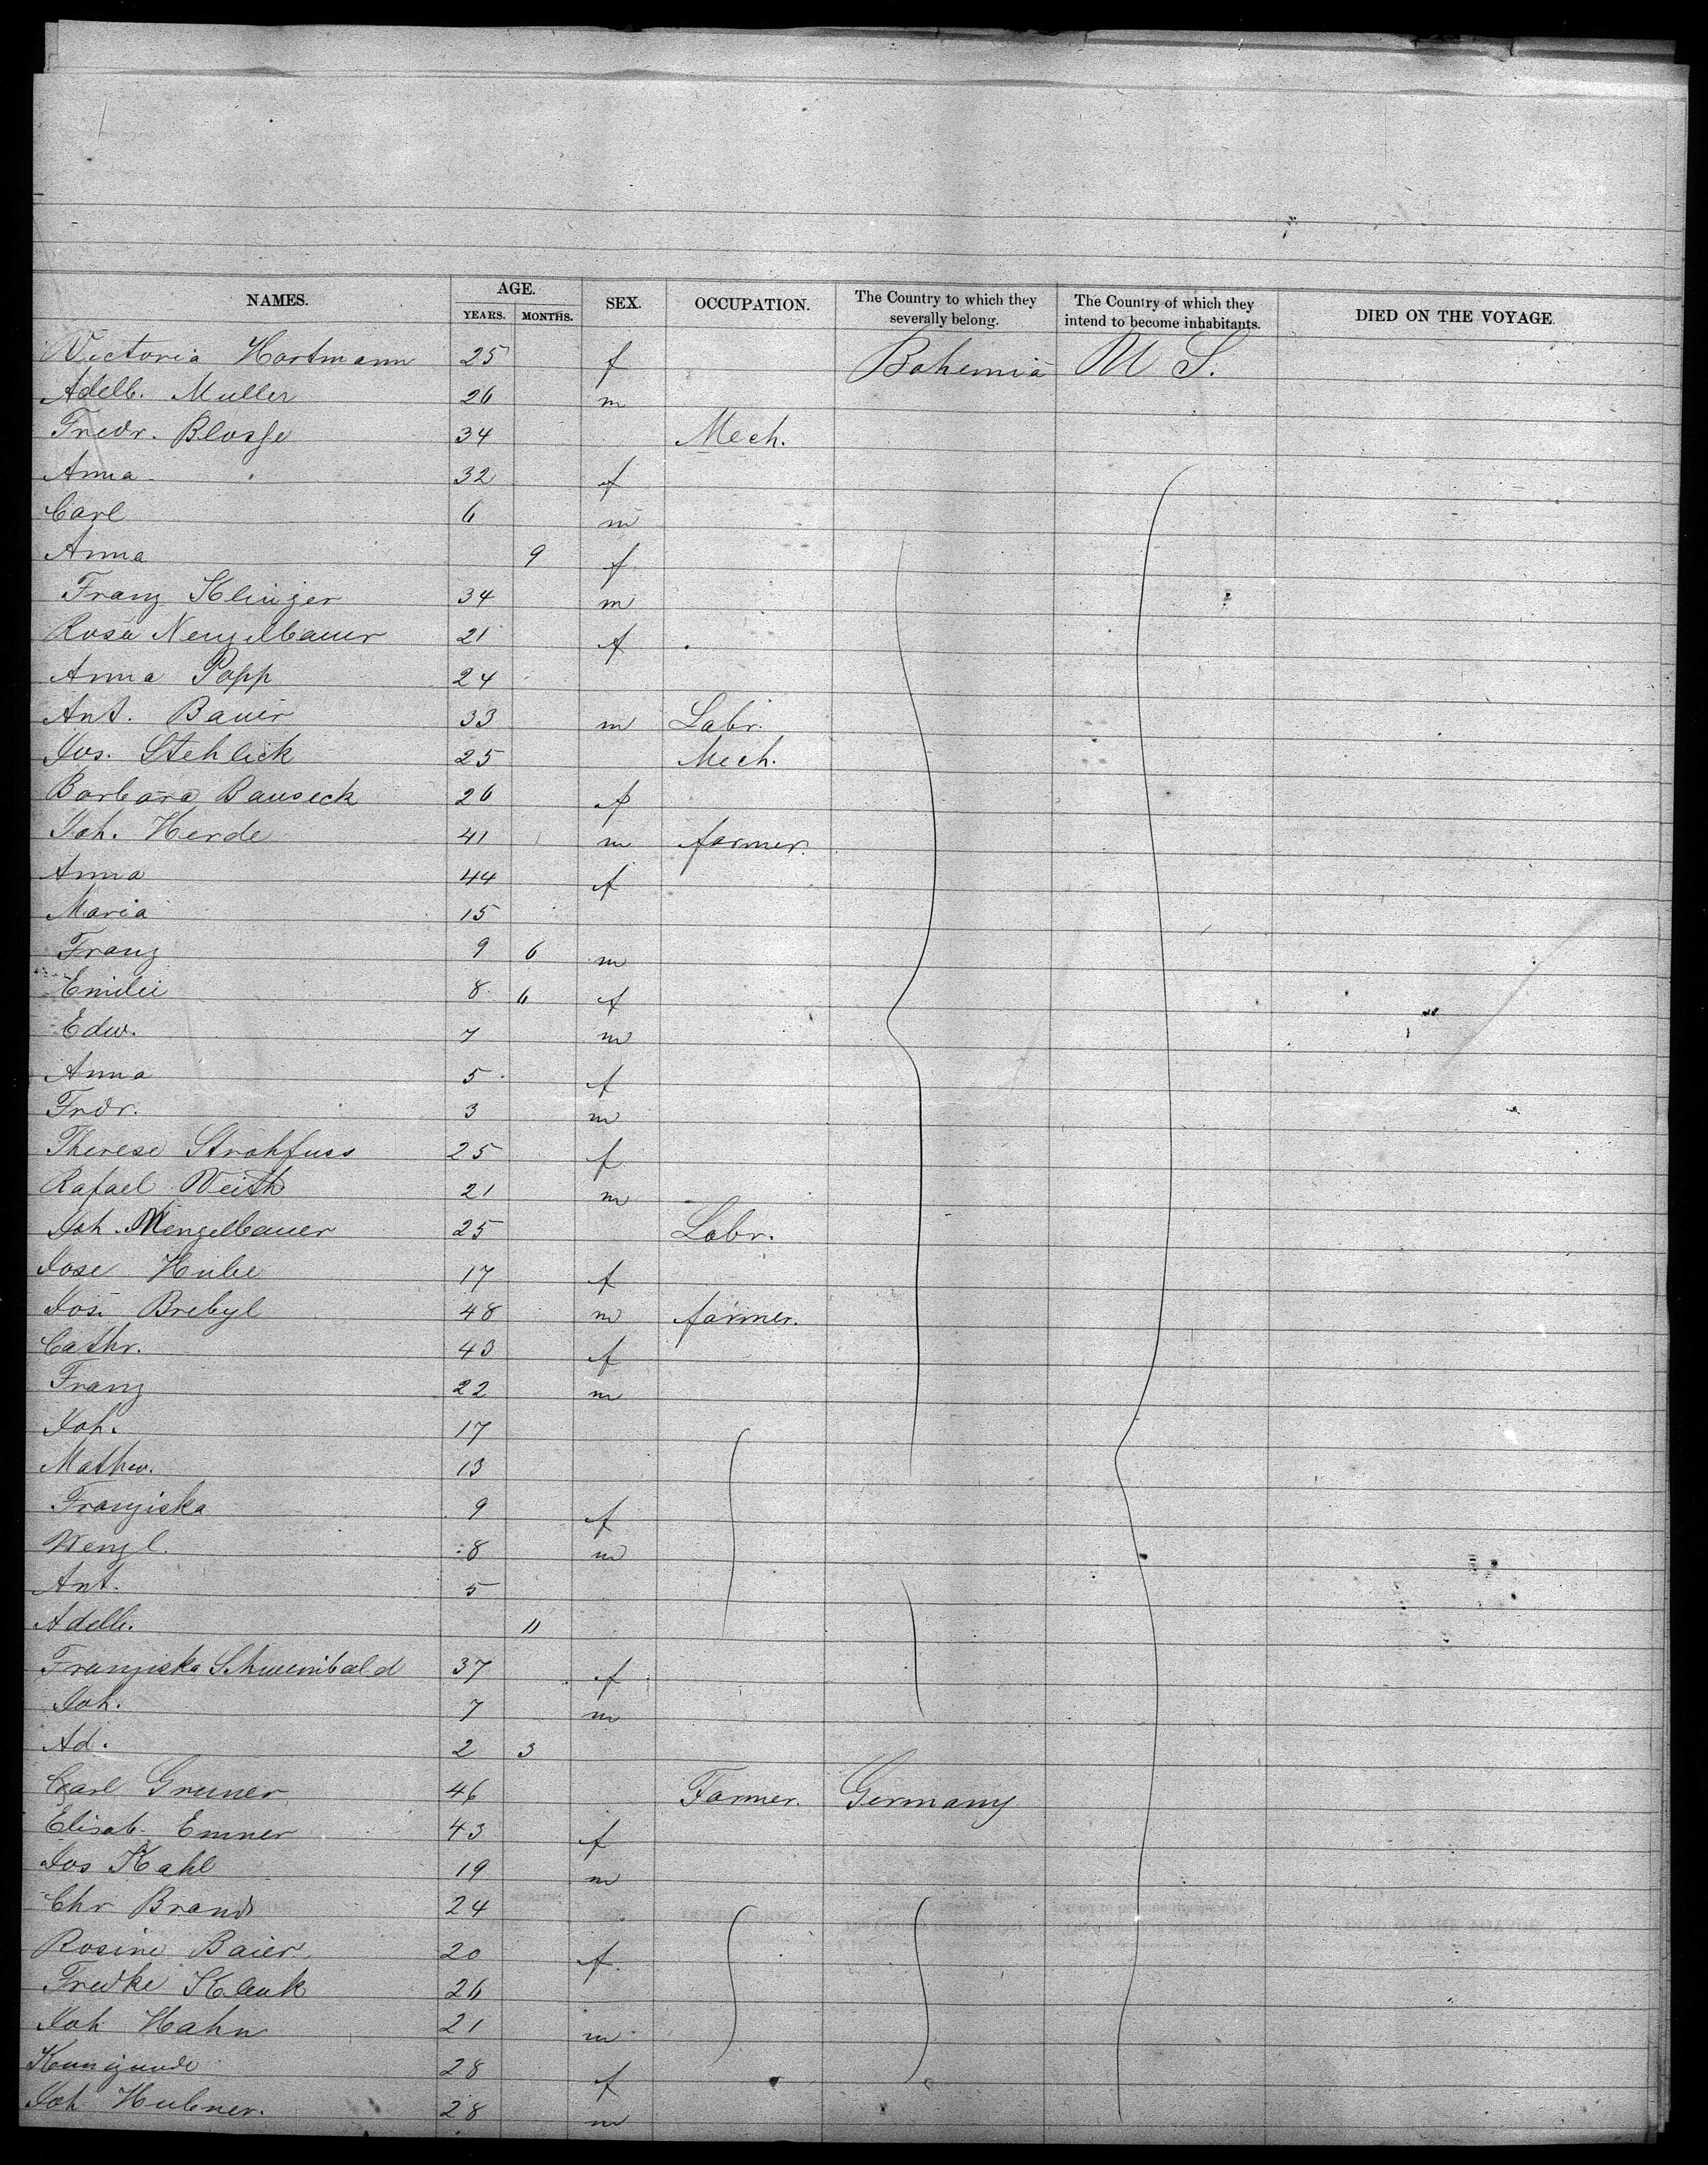 NAMES. AGE. SEX. OCCUPATION. The Country to which they severally belong. The Country of which they intend to become inhabitants. DIED ON THE VOYAGE.
YEARS. MONTHS.
Victoria Hartmann 25 f Bohemia U S.
Adelb. Muller 26 m
Fredr. Blosse 34 Mech.
Anna 32 f
Carl 6 m
Anna 9 f
Franz Klinger 34 m
Rosa Nengelbauer 21 f
Anna Popp 24
Ant. Bauer 33 m Labr.
Jos. Stehlick 25 Mech.
Barbara Bauseck 26 f
Joh. Herde 41 m farmer.
Anna 44 f
Maria 15
Franz 9 6 m
Emilie 8 6 f
Edw. 7 m
Anna 5 f
Frdr. 3 m
Therese Strohfuss 25 f
Rafael Veith 21 m
Joh. Mengelbauer 25 Labr.
Jose Hube 17 f
Jos. Brebyl 48 m farmer.
Cathr. 43 f
Franz 22 m
Joh. 17
Mathw. 13
Franziska 9 f
Wenzl. 8 m
Ant. 5
Adelb. 11
Franziska 37 f
Joh. 7 m
Ad. 2 3
Carl Gruner 46 Farmer. Germany
Elisab. Emner 43 f
Jos Kahl 19 m
Chr Brand 24
Rosine Baier 20 f
Fredke Klauk 26
Joh Hahn 21 m
Kunigunde 28 f
Joh Hubner. 28 m